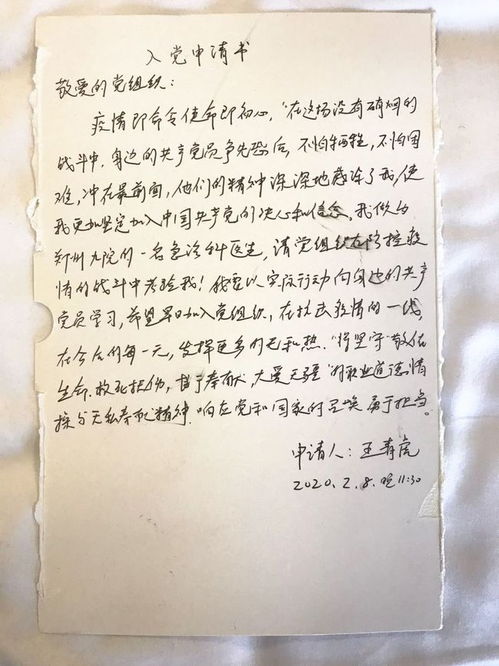 入党申请书
敬爱的党组织：
疫情即命令使命即初心，"在这场没有硝烟的
战斗中，身边的共产党员争先恐后，不怕牺牲，不怕困
难，冲在最前面，他们的精神深深地感染了我，使
我更加坚定加入中国共产党的决心和信念，我做为
郑州九院的一名急诊科医生，请党组织在防控疫
情的战斗中考验我！我要以实际行动向身边的共产
党员学习，希望早日加入党组织，在抗击疫情的一线，
在今后的每一天，发挥更多的光和热．"将坚守"敬佑
生命．救死扶伤，甘于奉献 大爱无疆"的职业道德情
操与无私奉献精神．响应党和国家的召唤 勇于担当。
申请人：王青虎
2020.2.8.晚11:30